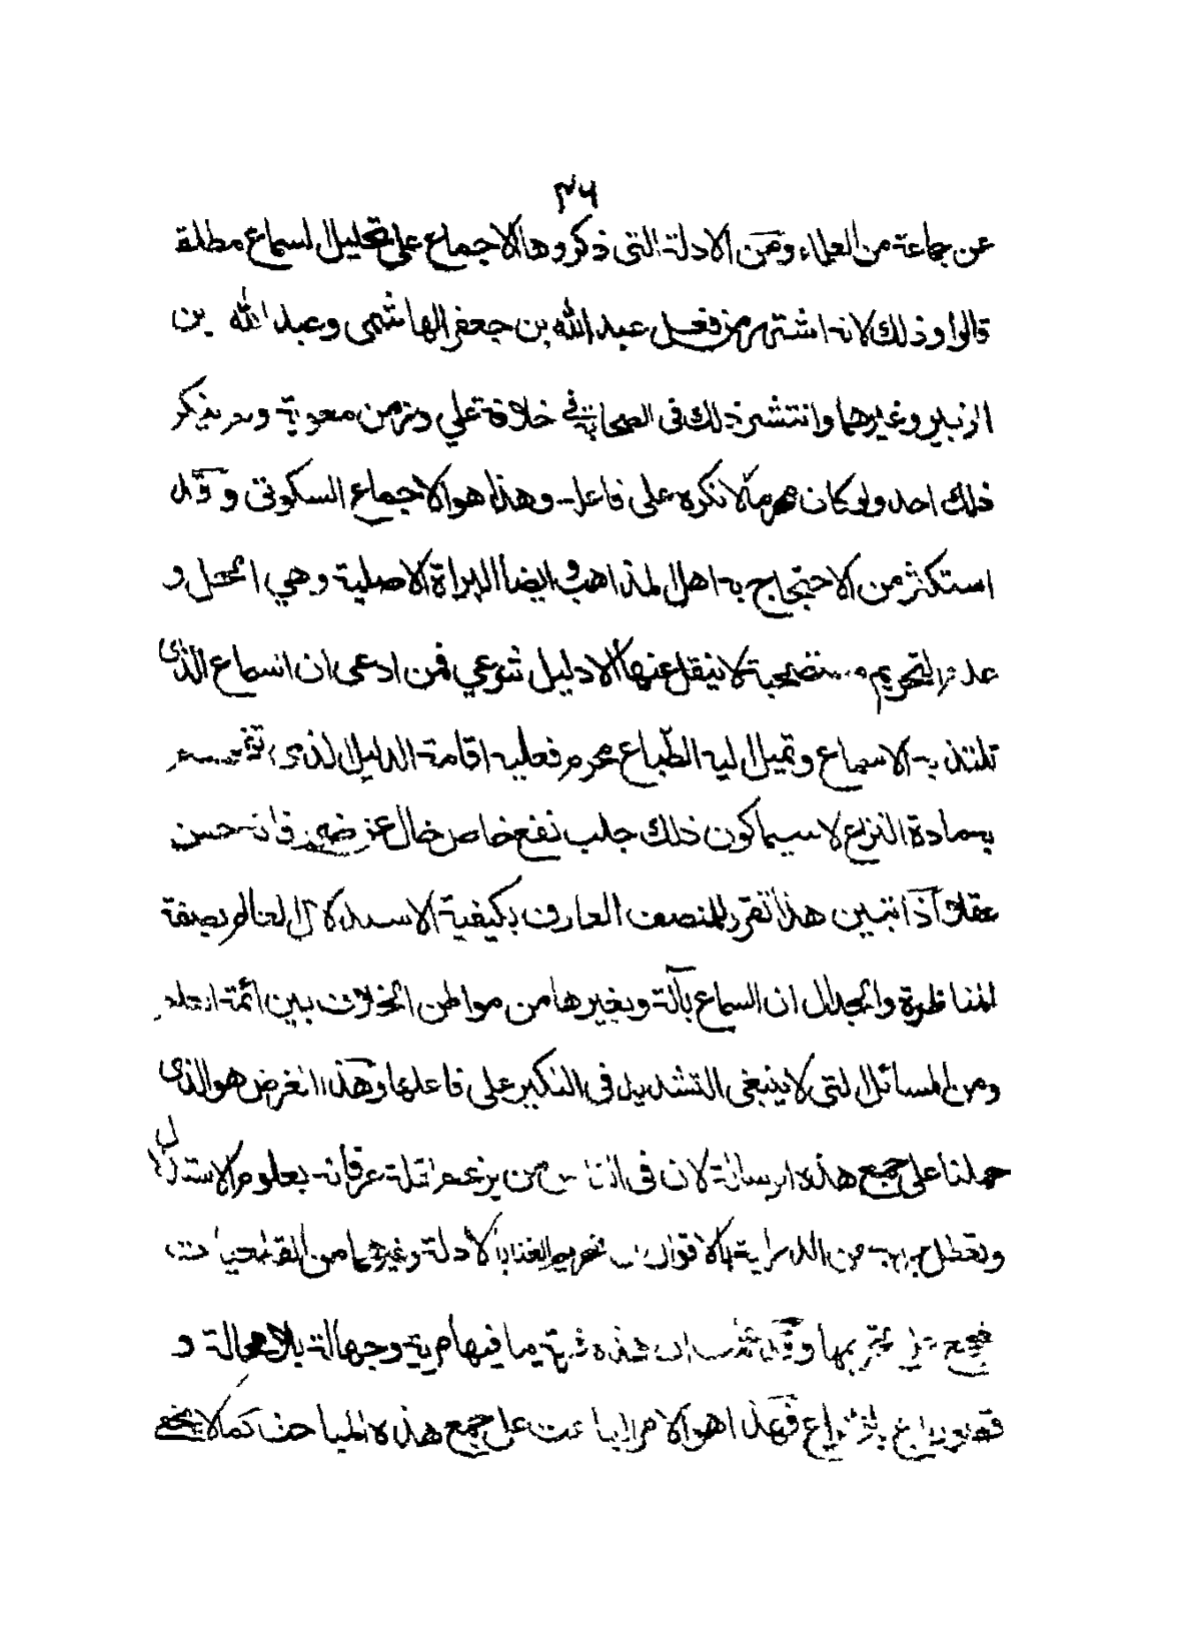 ٣٦
عن جماعة من العلماء ومن الادلة التى ذكروها الاجماع على تحليل السماع مطلقا
قالوا وذلك لانه اشتهر من فعل عبد الله بن جعفر الهاشمى وعبد الله بن
الزبير وغيرهما وانتشر ذلك فى الصحابة فى خلافة علي وزمن معوية ولم ينكر
ذلك احد ولو كان محرما لانكره على فاعله وهذا هو الاجماع السكوتى وقد
استكثر من الاحتجاج به اهل المذاهب وايضا البراة الاصلية وهي الحل و
عدم التحريم مستصحبة لا ينقل عنها الا دليل شرعي فمن ادعى ان السماع الذى
تلتذ به الاسماع وتميل اليه الطباع محرم فعليه اقامة الدليل الذى
بمادة النزاع لا سيما كون ذلك جلب نفع خاص خال عن ضرر فانه حسن
عقلا اذا تبين هذا تقرر للمنصف العارف بكيفية الاستدلال العالم بصفة
المناظرة والجدال ان السماع بآلة وبغيرها من مواطن الخلاف بين ائمة العلم
ومن المسائل التى لا ينبغى التشديد فى النكير على فاعلها وهذا الغرض هو الذى
حملنا على جمع هذه الرسالة لان فى الناس من يزعم لقلة عرفانه بعلوم الاستدلال
وتعطل من الدراية بالاقوال ان تحريم الغنا بالادلة وغيرهما من القطعيات
المجمع على تحريمها وقد هذه فرية ما فيها مرية وجهالة بلا محالة و
فهذا هو الامر الباعث على جمع هذه المباحث كما لا يخفى